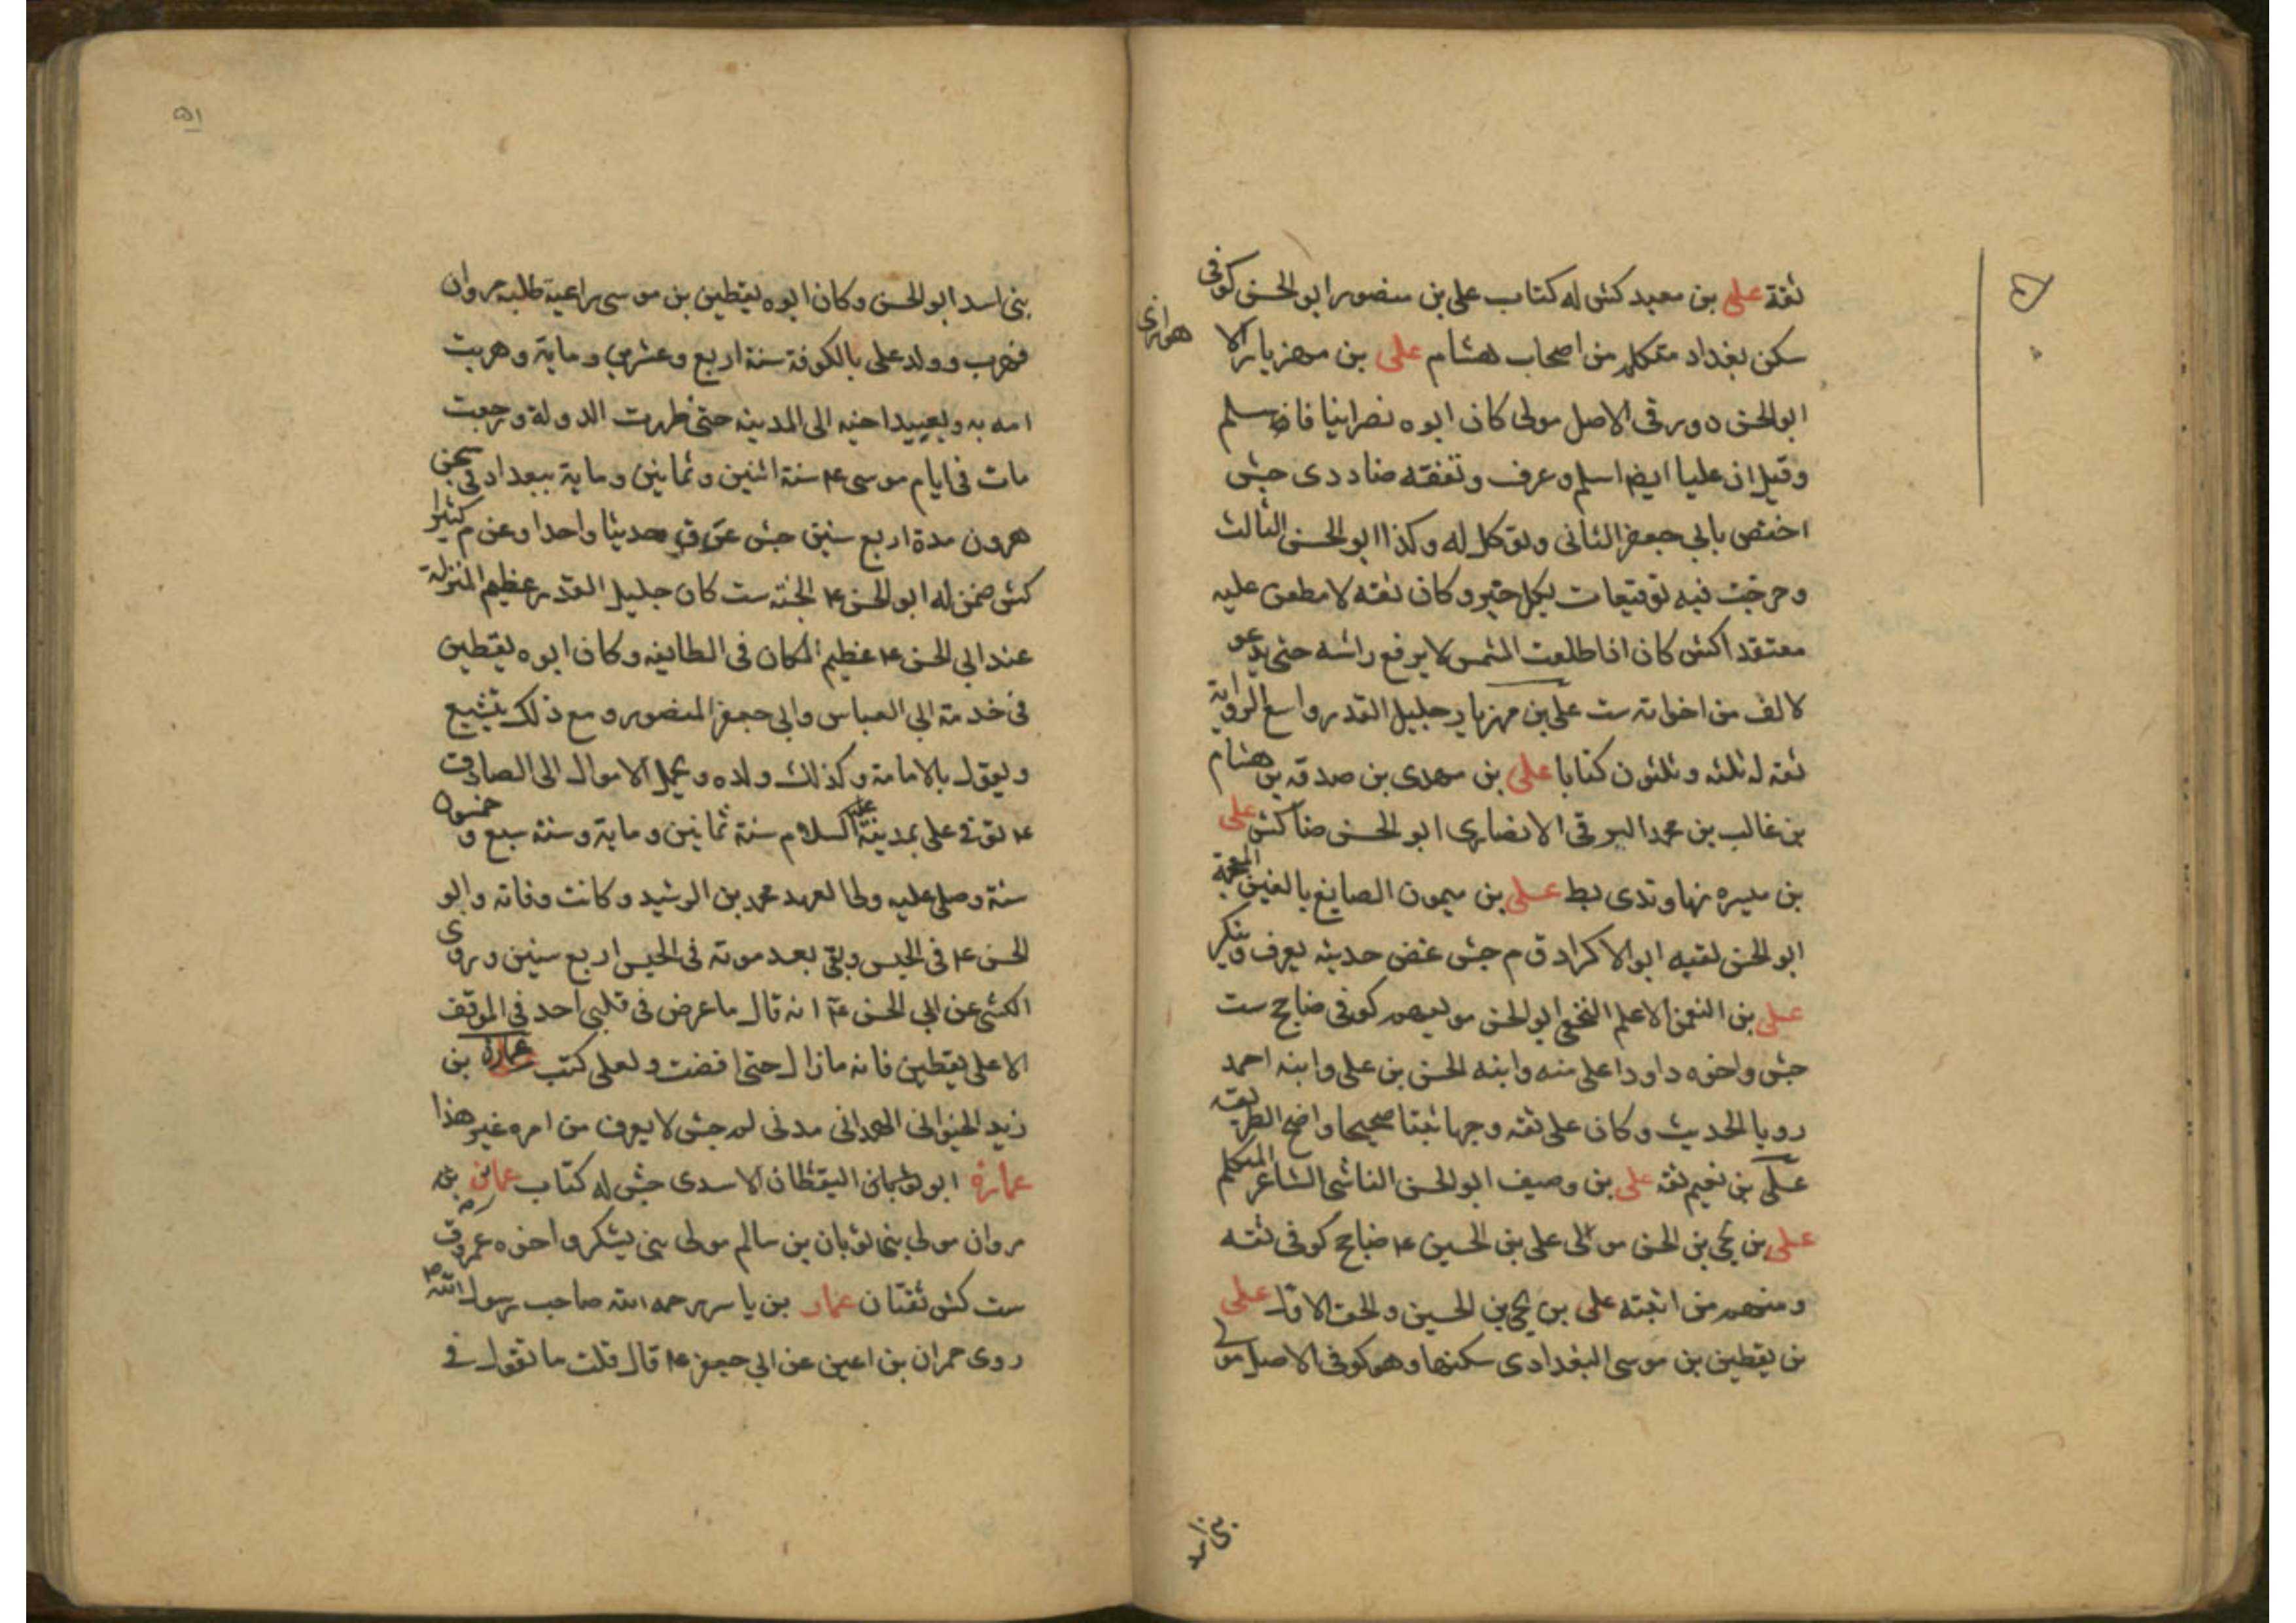 ثقة علي بن معبد كش له كتاب علي بن منصور ابو الحسن كوفي
سكن بغداد متكلم من اصحاب هشام علي بن مهزيار الا
هوازي
ابو الحسن دورقي الاصل مولى كان ابوه نصرانيا فاسلم
وقيل ان عليا ايضا اسلم وعرف وتفقه ضا د دى جش
اختص بابي جعفر الثاني وتوكل له وكذا ابو الحسن الثالث
وخرجت فيه توقيعات بكل خير وكان ثقه لا مطعن عليه
معتقدا كش كان اذا طلعت الشمس لا يرفع راسه حتى يدعو
لالف من اخوانه ست علي بن مهزيار جليل القدر واسع الرواية
ثقه له ثلثه وثلثون كتابا علي بن مهدى بن صدقه بن هشام
بن غالب بن محمد البرقي الانصارى ابو الحسن ضا كش علي
بن ميسره نهاوندى بط علي بن ميمون الصايغ بالغين المعجمة
ابو الحسن لقبه ابو الاكراد ق م جش غض حديثه يعرف وينكر
علي بن النعمن الاعلم النخعي ابو الحسن مولاهم كوفي ضا جح ست
جش واخوه داود اعلى منه وابنه الحسن بن علي وابنه احمد
رويا الحديث وكان علي ثقه وجها ثبتا صحيحا واضح الطريقه
علي بن نعيم ثقه علي بن وصيف ابو الحسن الناشي الشاعر المتكلم
علي بن يحيى بن الحسن مولى علي بن الحسين ع ضا جح كوفي ثقه
ومنهم من اثبته علي بن يحيى بن الحسين والحق الاول علي
بن يقطين بن موسى البغدادى سكنها وهو كوفي الاصل مولى
بني اسد
٥١
بني اسد ابو الحسن وكان ابوه يقطين بن موسى داعية طلبه مروان
فهرب وولد علي بالكوفة سنة اربع وعشرين وماية وهربت
امه به وبعبيد اخيه الى المدينه حتى ظهرت الدولة ورجعت
مات في ايام موسى ع سنة اثنين وثمانين وماية ببغداد في سجن
هرون مدة اربع سنين جش عن ق حديثا واحدا وعن م كثيرا
كش ضمن له ابو الحسن ع الجنه ست كان جليل القدر عظيم المنزلة
عند ابي الحسن ع عظيم المكان في الطايفه وكان ابوه يقطين
في خدمة ابي العباس وابي جعفر المنصور ومع ذلك يتشيع
ويقول بالامامة وكذلك ولده ويحمل الاموال الى الصادق
ع توفي علي بمدينة السلام سنة ثمانين وماية وسنة سبع و خمسون
سنة وصلى عليه ولي العهد محمد بن الرشيد وكانت وفاته وابو
الحسن ع في الحبس وبقي بعد موته في الحبس اربع سنين وروى
الكشي عن ابي الحسن ع انه قال ما عرض في قلبي احد في الموقف
الا علي يقطين فانه ما زال حتى افضت ولعلي كتب عمارة بن
زيد الخيواني الهمداني مدني لم جش لا يعرف من امره غير هذا
عمارة ابو اليقظان الاسدى جش له كتاب عمار بن
مروان مولى بني ثوبان بن سالم مولى بني يشكر واخوه عمرو ق
ست كش ثقتان عمار بن ياسر رحمه الله صاحب رسول الله ص
روى حمران بن اعين عن ابي جعفر ع قال قلت ما تقول في